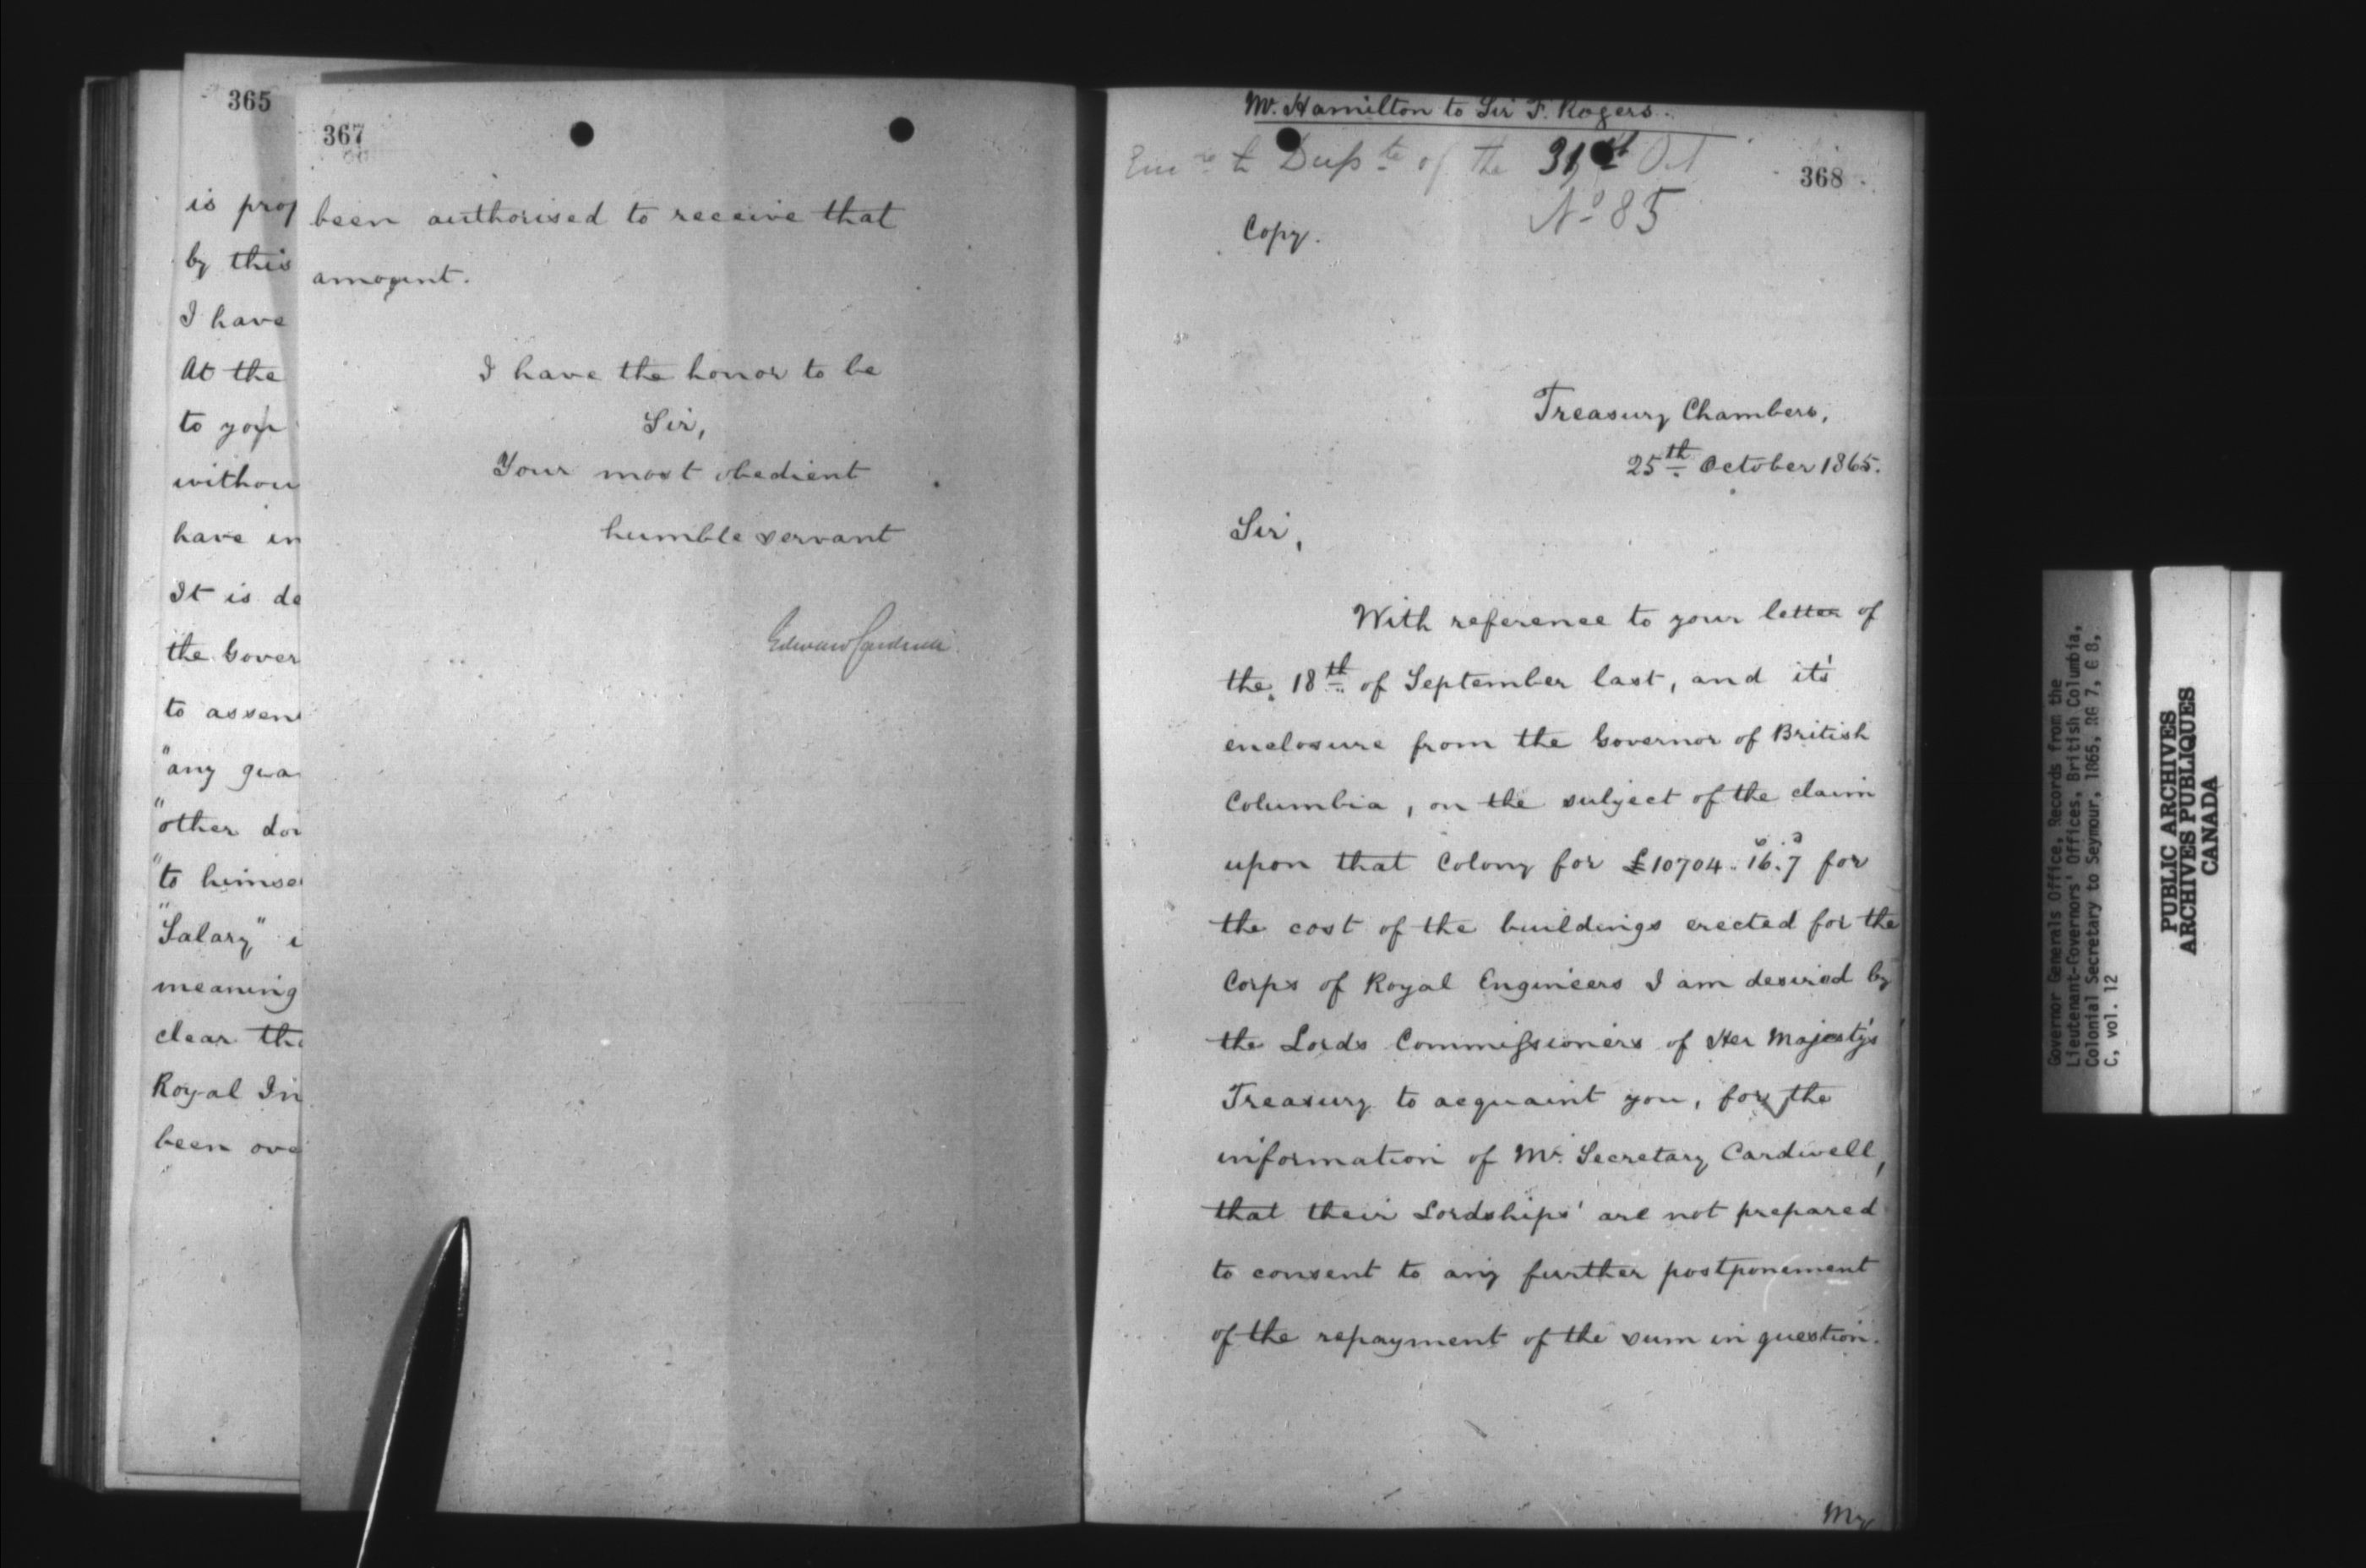 365
is prop
by this
I have
At the
to you
withou
have in
It is de
the Gover
to assen
"any gua
"other do
"to himse
"Salary"
meaning
clear the
Royal In
been ove
367
been authorised to receive that
amount.
I have the honor to be
Sir,
Your most obedient
humble servant
Edward Cardwell
Mr. Hamilton to Sir F. Rogers.
of the 31st Oct
No 85
368
Copy.
Treasury Chambers,
25th October 1865.
Sir,
With reference to your letter of
the 18th of September last, and it's
enclosure from the Governor of British
Columbia, on the subject of the claim
upon that Colony for £10704.16.7 for
the cost of the buildings erected for the
Corps of Royal Engineers I am desired by
the Lords Commissioners of Her Majesty's
Treasury to acquaint you, for the
information of Mr. Secretary Cardwell,
that their Lordships' are not prepared
to consent to any further postponement
of the repayment of the sum in question.
My
Governor Generals Office, Records from the
Lieutenant-Governors' Offices, British Columbia,
Colonial Secretary to Seymour, 1865, RG 7, G 8,
C, vol. 12
PUBLIC ARCHIVES
ARCHIVES PUBLIQUES
CANADA